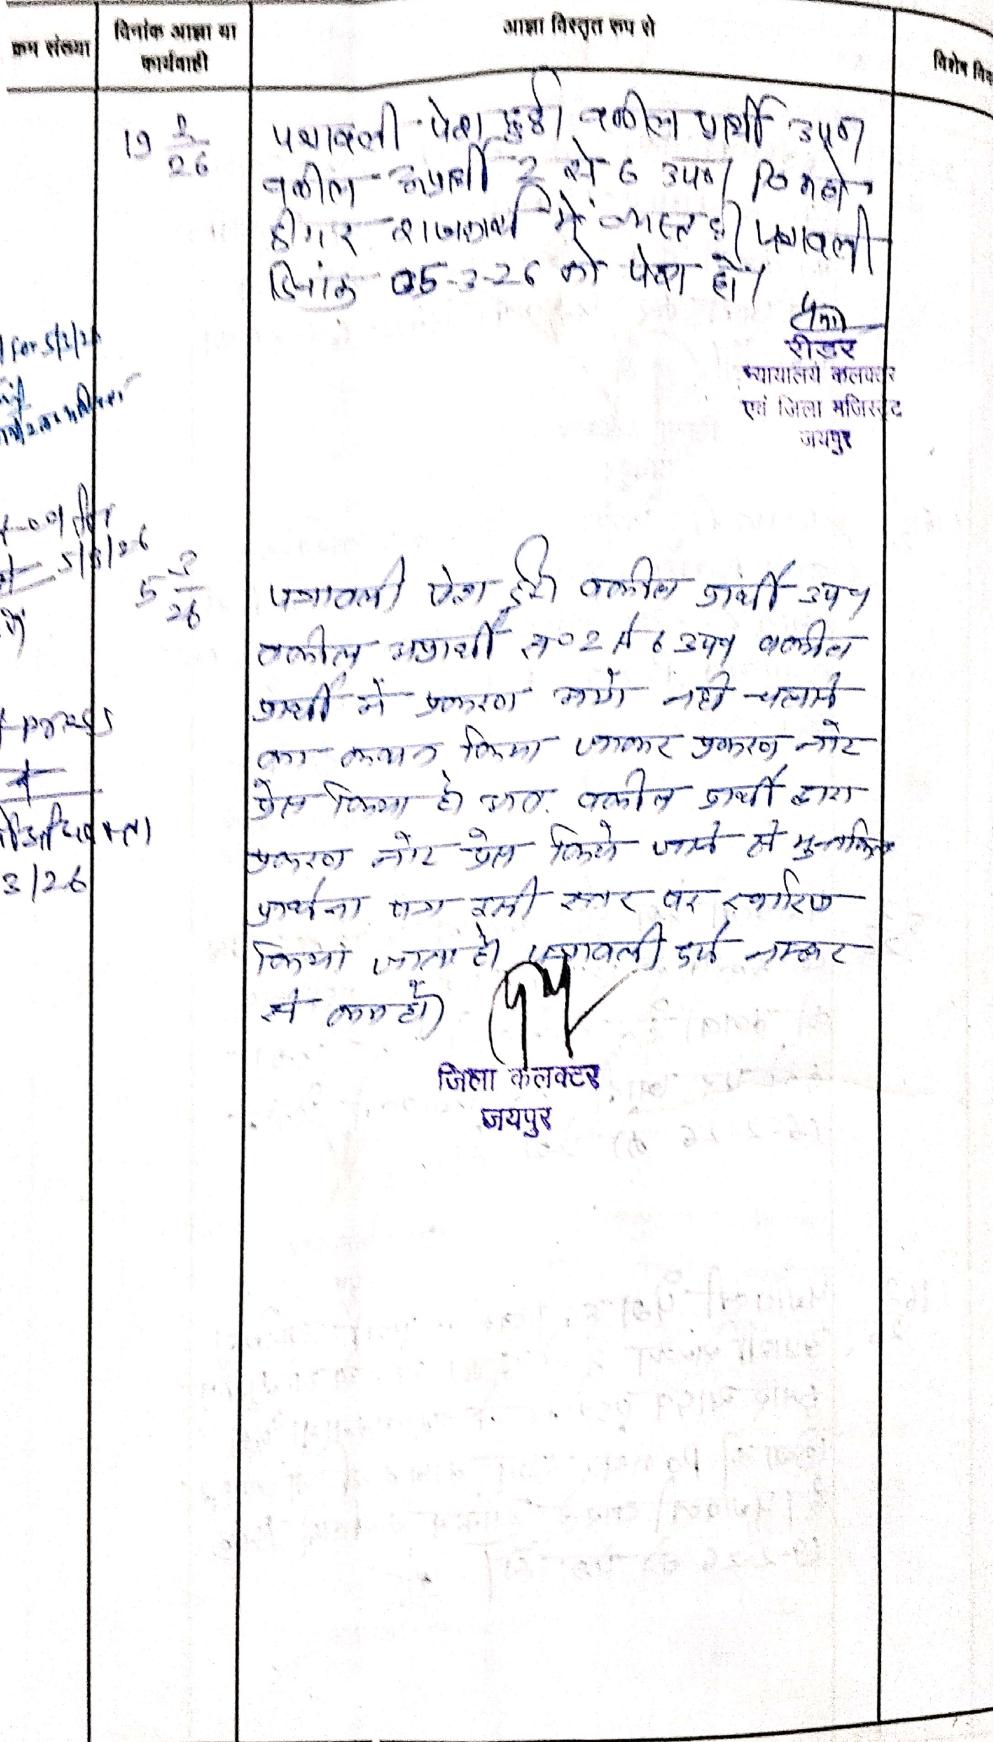 क्रम संख्या
दिनांक आज्ञा या
कार्यवाही
आज्ञा विस्तृत रूप से
विशेष
19 2/26
पत्रावली पेश हुई। वकील प्रार्थी उप०।
वकील अप्रार्थी 2 से 6 उप०।
राजकार्य में व्यस्त है। पत्रावली
दिनांक 05-3-26 को पेश हो।
रीडर
न्यायालय कलक्टर
एवं जिला मजिस्ट्रेट
जयपुर
for 5/2/26
5/3/26
5 3/26
पत्रावली पेश हुई। वकील प्रार्थी उप०
वकील अप्रार्थी सं० 2 से 6 उप० वकील
प्रार्थी ने प्रकरण आगे नहीं चलाने
का कथन किया जाकर प्रकरण नोट
प्रेस किया है। अतः वकील प्रार्थी द्वारा
प्रकरण नोट प्रेस किये जाने से
प्रार्थना पत्र इसी स्तर पर खारिज
किया जाता है। पत्रावली दर्ज नम्बर
से कम हो।
press
3/26
जिला कलक्टर
जयपुर